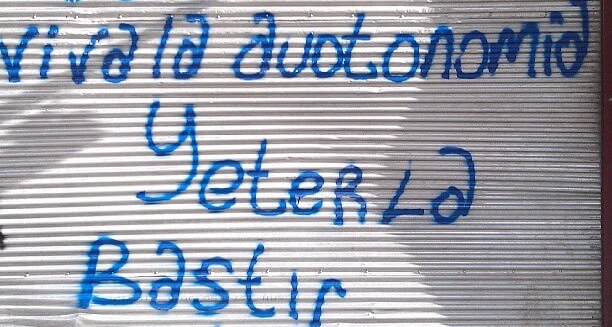 viva la auotonomia
YeteR La
Bastır